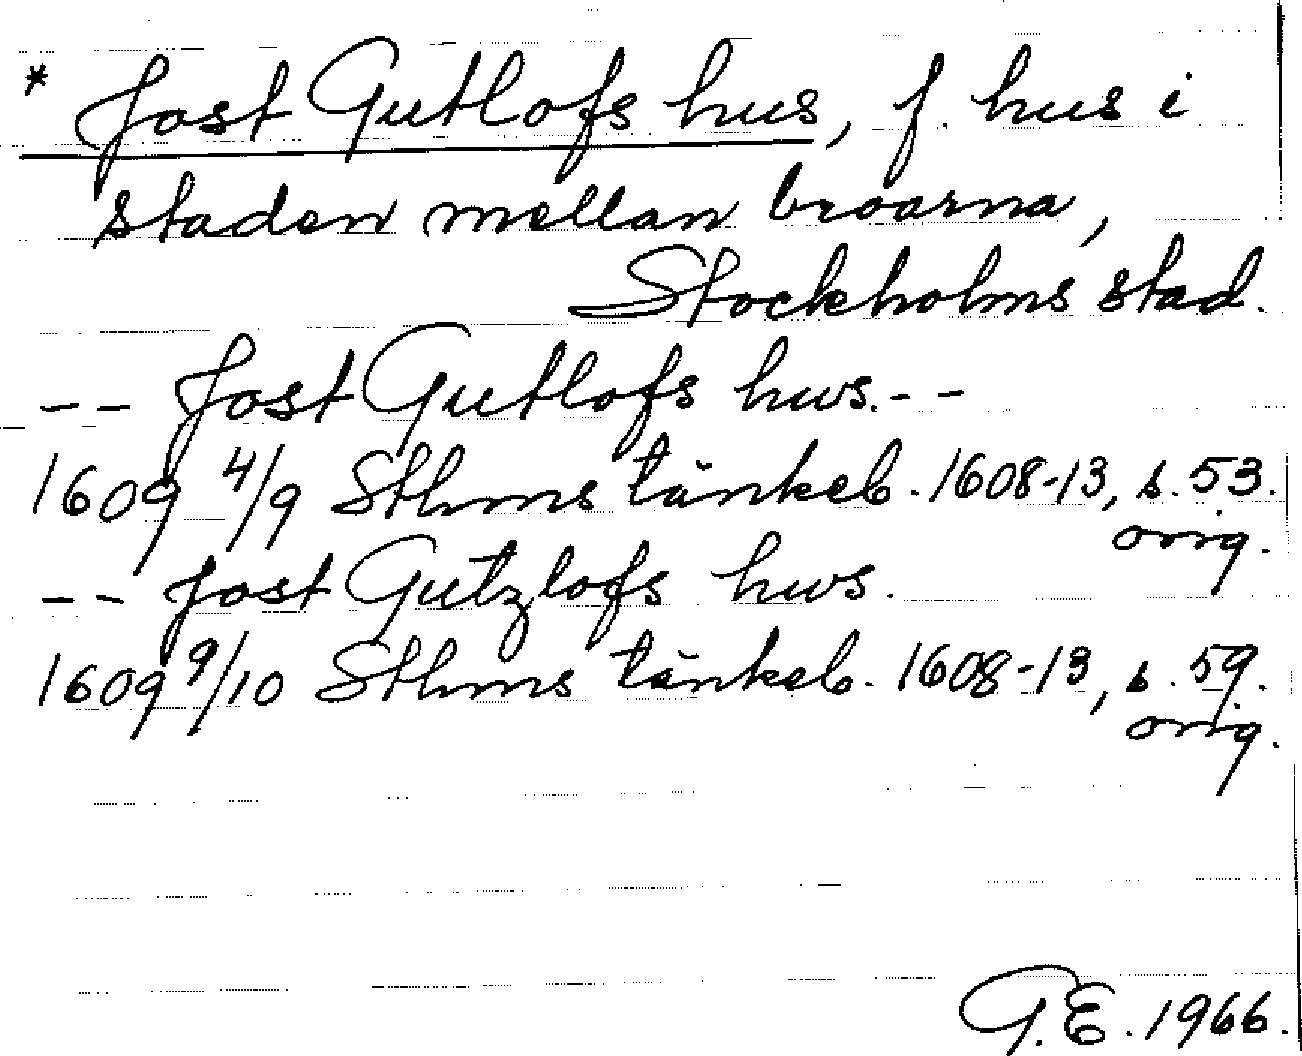 * Jost Gutlofs hus, f. hus i
staden mellan broarna,
Stockholms stad.
-- Jost Gutlofs hws.--
1609 4/9 Sthms tänkeb. 1608-13, s. 53.
orig.
-- Jost Gutzlofs hws.
1609 9/10 Sthms tänkeb. 1608-13, s. 59.
orig.
G.E. 1966.